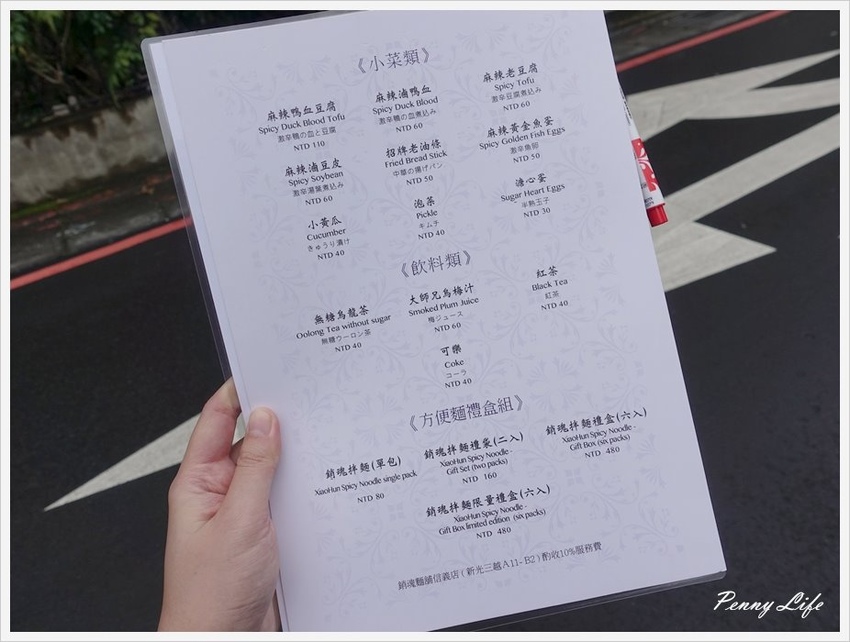 《小菜類》
麻辣鴨血豆腐
Spicy Duck Blood Tofu
激辛鴨の血と豆腐
NTD 110
麻辣滷鴨血
Spicy Duck Blood
激辛鴨の血煮込み
NTD 60
麻辣老豆腐
Spicy Tofu
激辛豆腐煮込み
NTD 60
麻辣滷豆皮
Spicy Soybean
激辛湯葉煮込み
NTD 60
招牌老油條
Fried Bread Stick
中華の揚げパン
NTD 50
麻辣黃金魚蛋
Spicy Golden Fish Eggs
激辛魚卵
NTD 50
小黃瓜
Cucumber
きゅうり漬け
NTD 40
泡菜
Pickle
キムチ
NTD 40
溏心蛋
Sugar Heart Eggs
半熟玉子
NTD 30
《飲料類》
無糖烏龍茶
Oolong Tea without sugar
無糖ウーロン茶
NTD 40
大師兄烏梅汁
Smoked Plum Juice
梅ジュース
NTD 60
紅茶
Black Tea
紅茶
NTD 40
可樂
Coke
コーラ
NTD 40
《方便麵禮盒組》
銷魂拌麵(單包)
XiaoHun Spicy Noodle single pack
NTD 80
銷魂拌麵禮袋(二入)
XiaoHun Spicy Noodle -
Gift Set (two packs)
NTD 160
銷魂拌麵禮盒(六入)
XiaoHun Spicy Noodle -
Gift Box (six packs)
NTD 480
銷魂拌麵限量禮盒(六入)
XiaoHun Spicy Noodle -
Gift Box limited edition (six packs)
NTD 480
銷魂麵舖信義店 ( 新光三越A11- B2 ) 酌收10%服務費
Penny Life